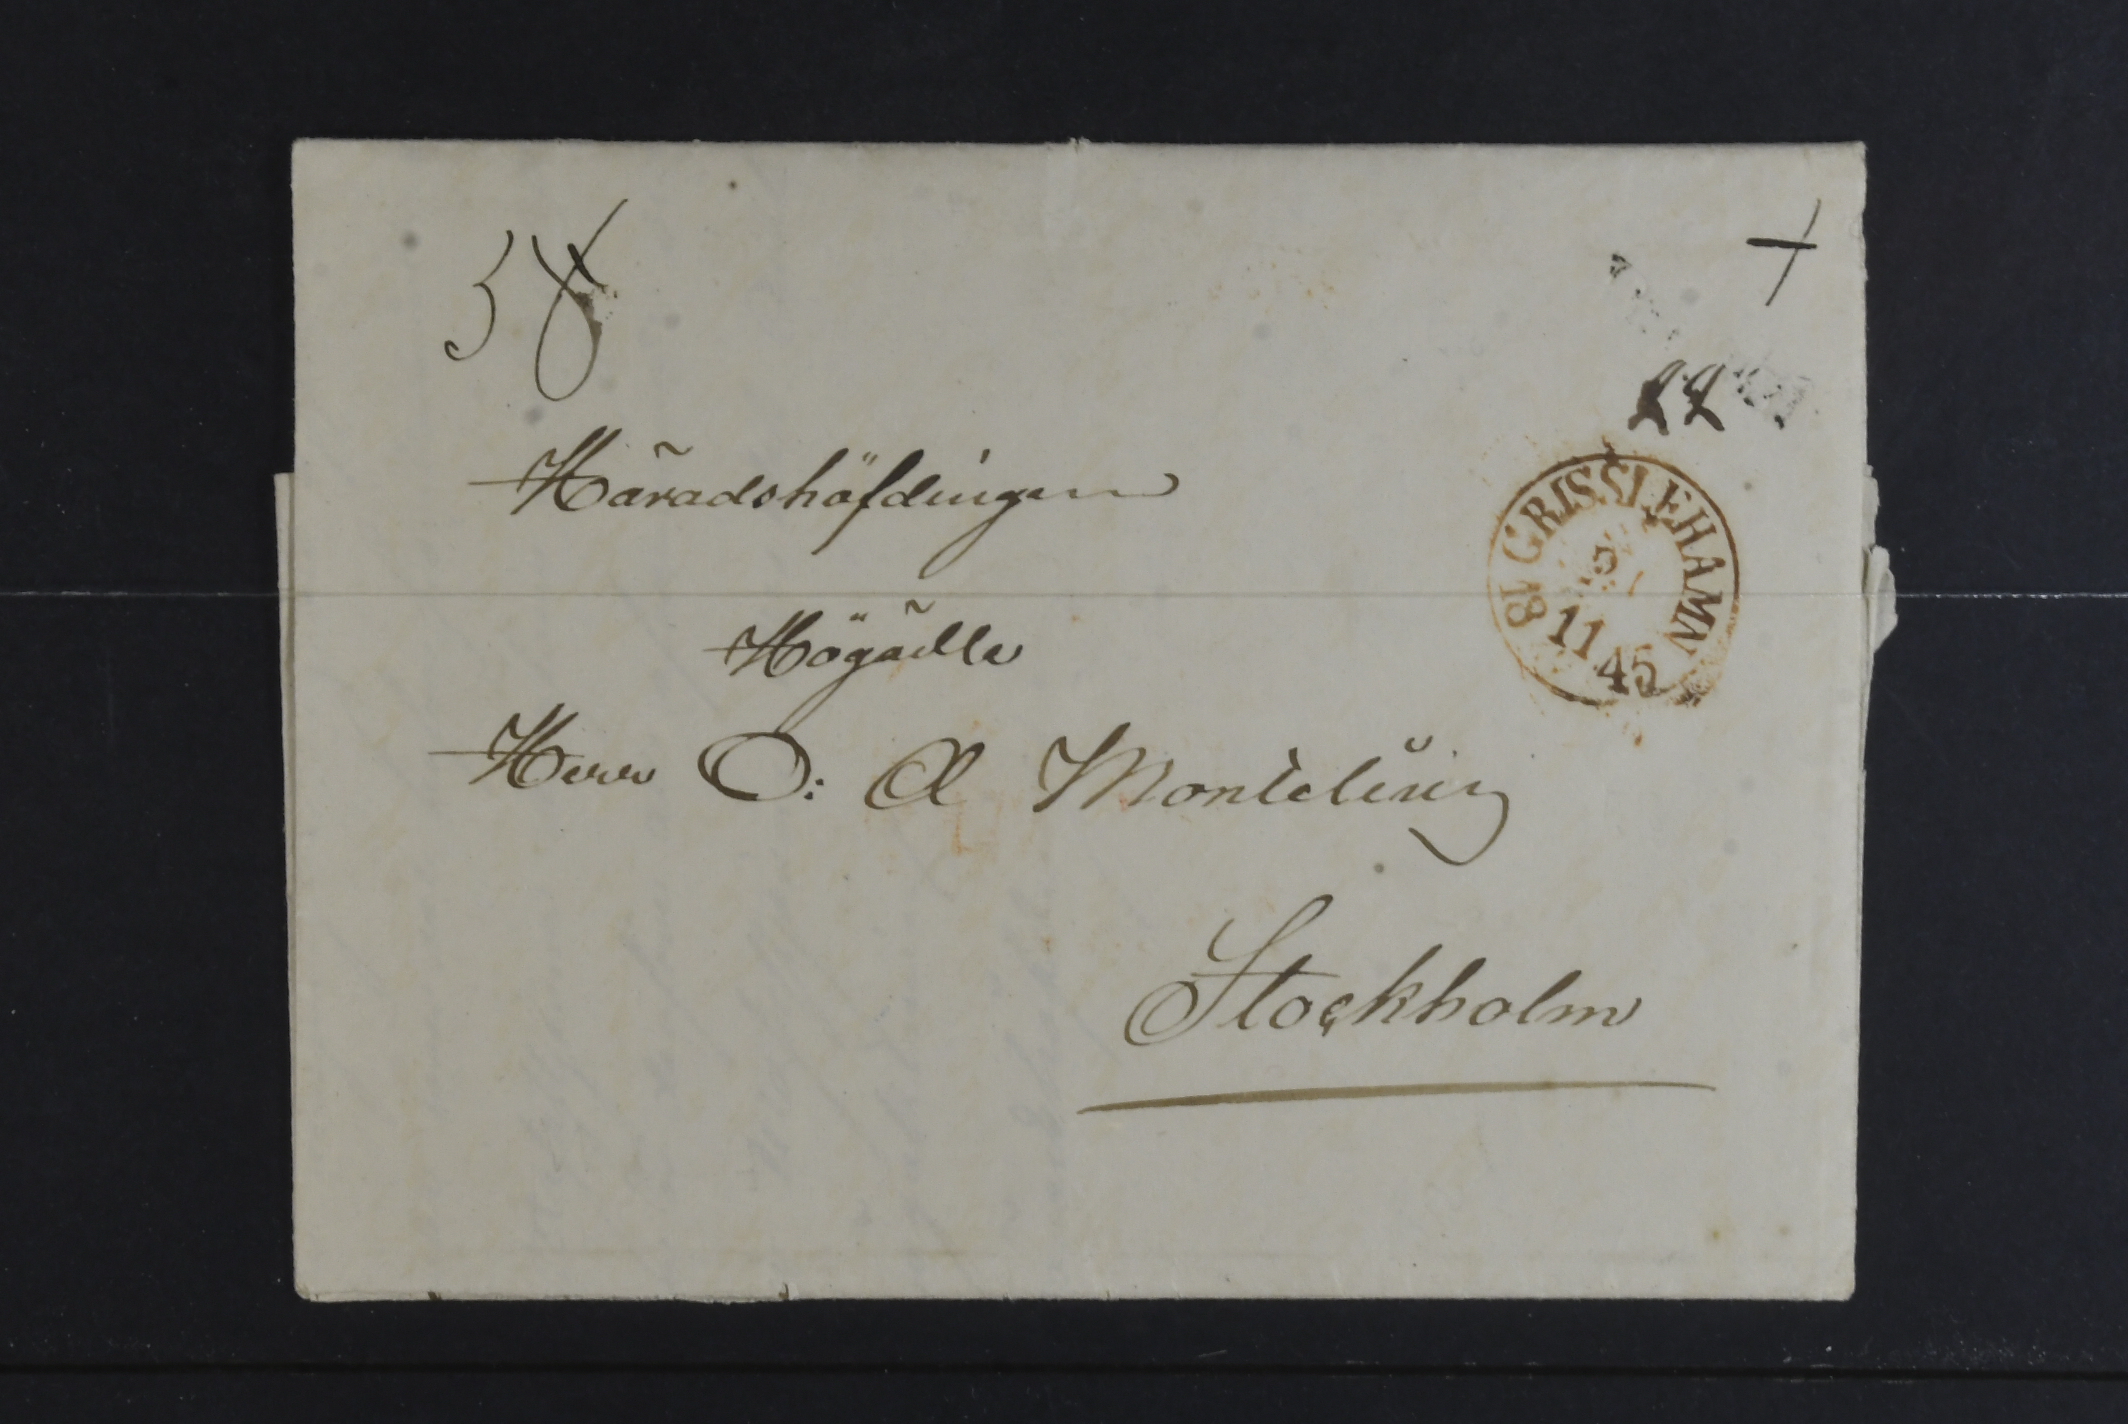 58
22
Häradshöfdingen
GRISSLEHAMN
11
18 45
Högädle
Herr O: A Montelius
Stockholm